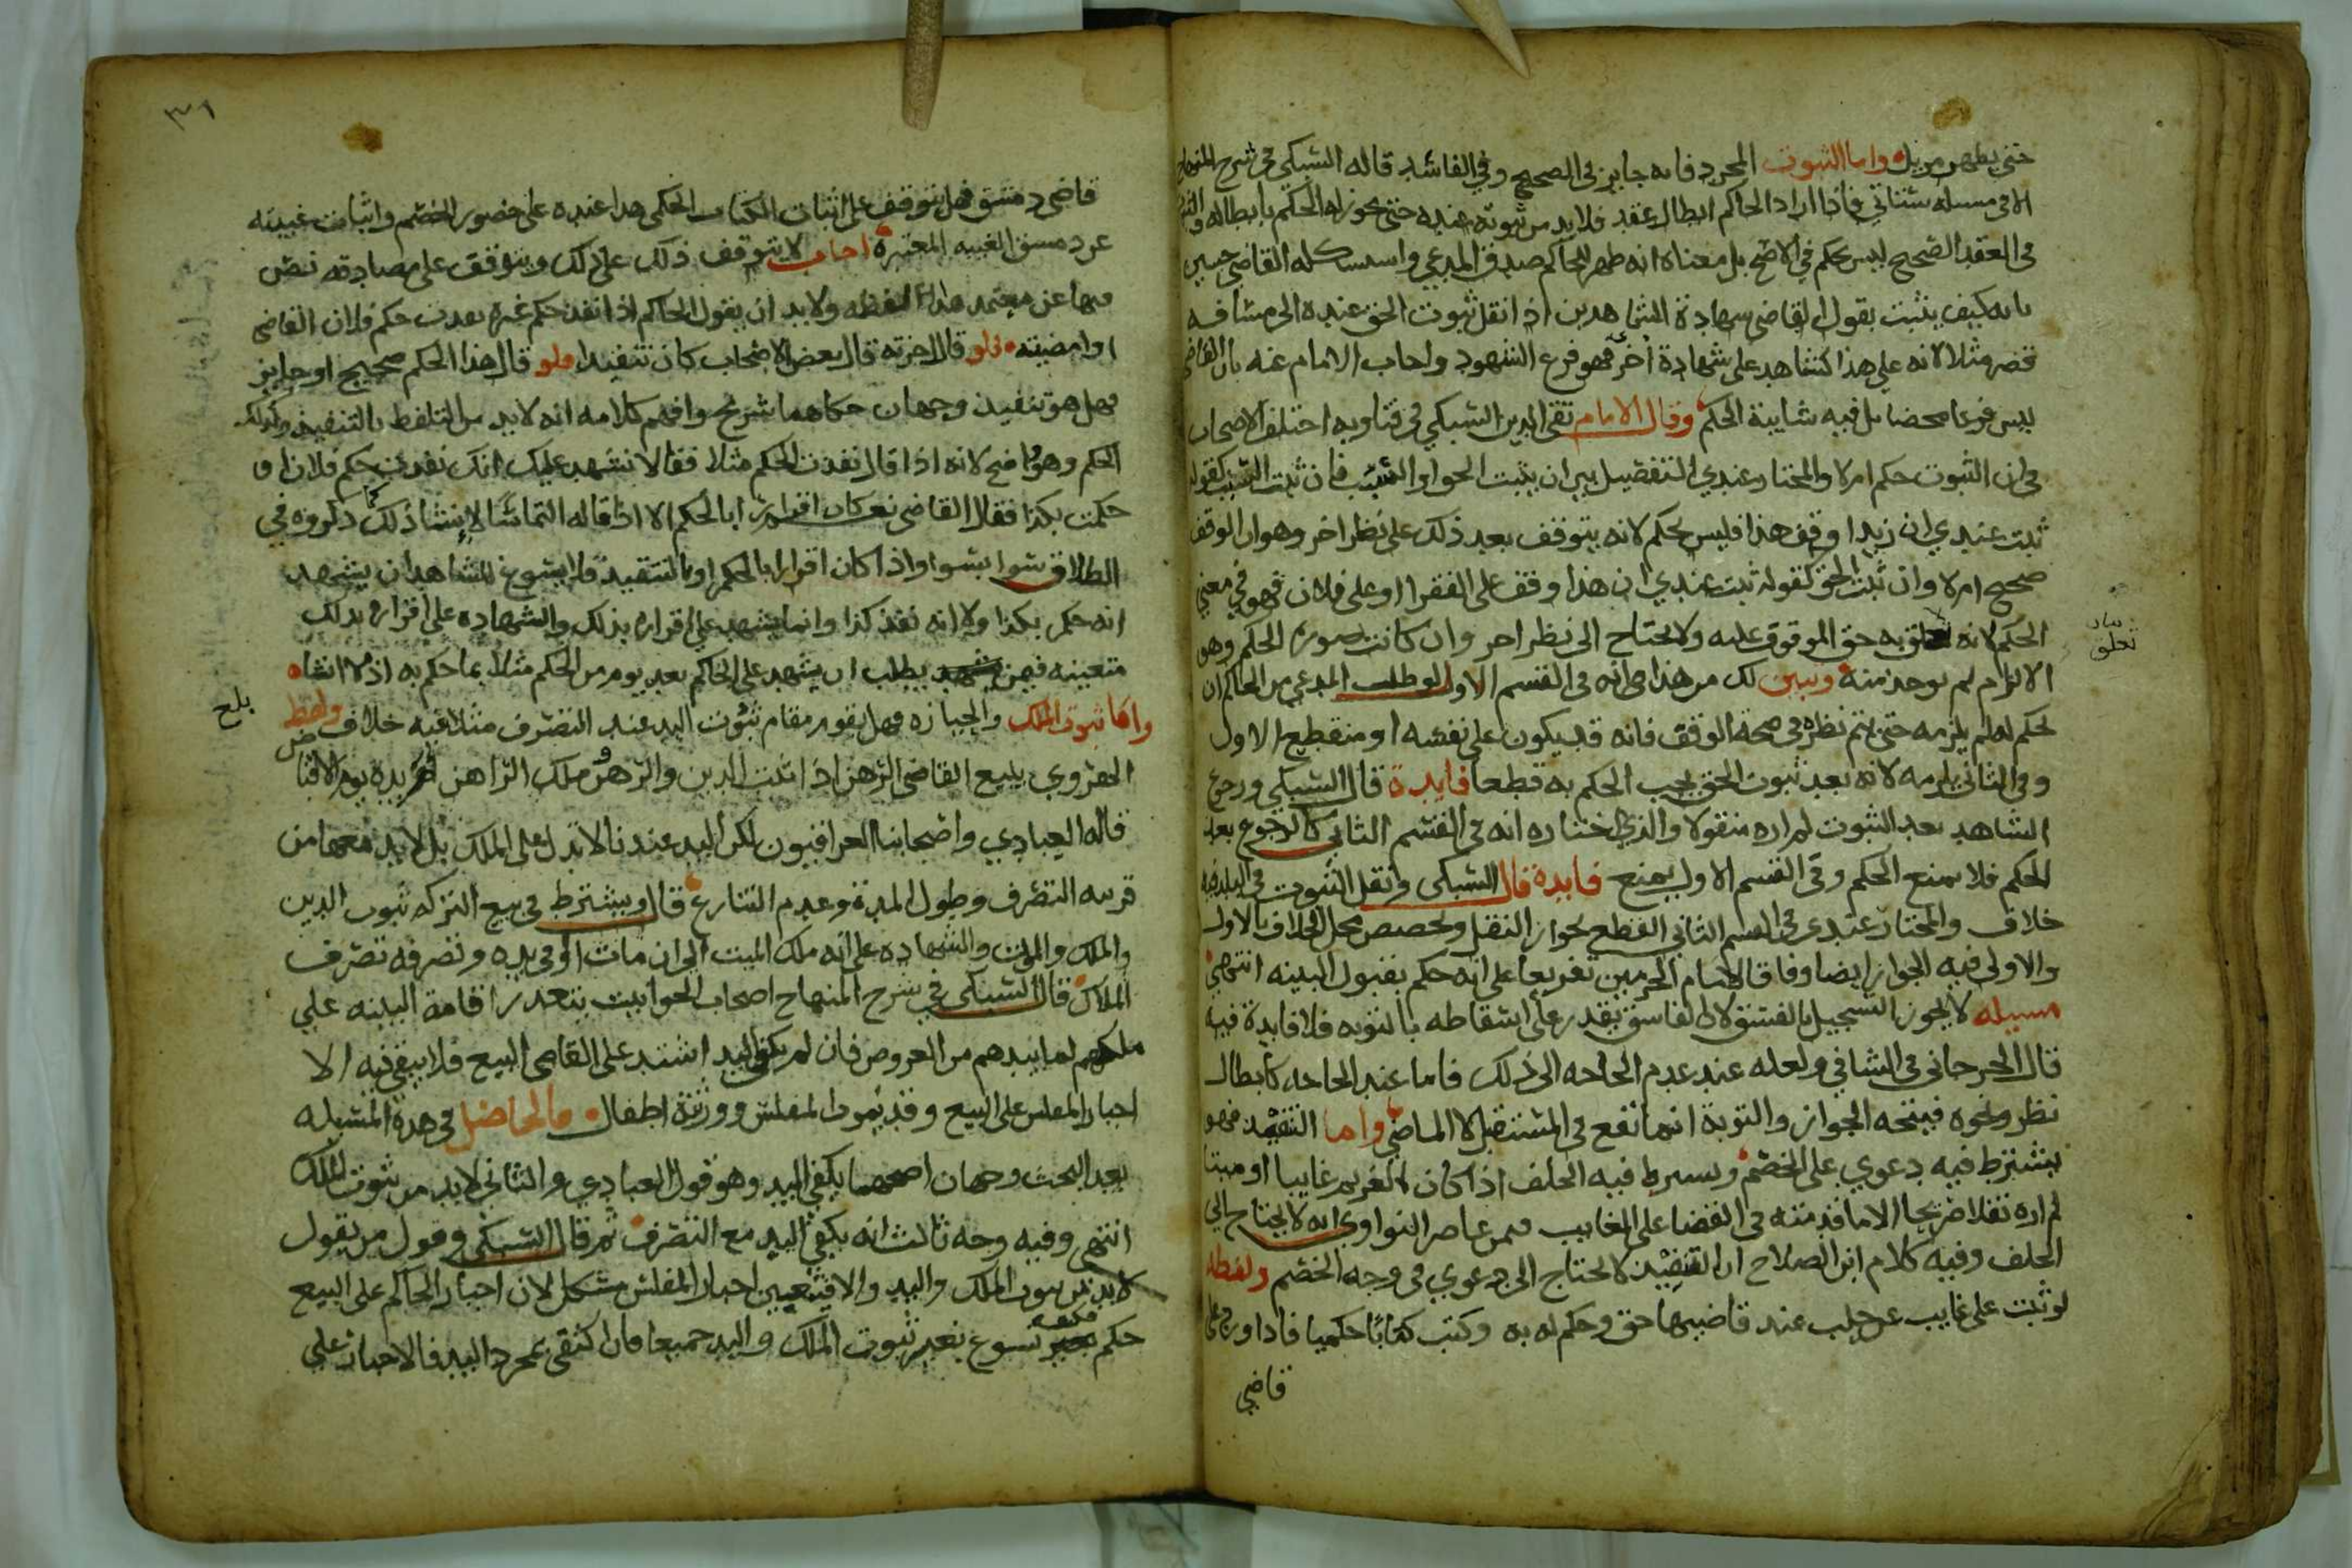 حتى يظهر مزيل واما الثبوت المجرد فانه جايز في الصحيح وفي الفاسد قاله السبكي في شرح المنهاج
الا في مسيله ستاتي فاذا اراد الحاكم ابطال عقد فلا بد من ثبوته عنده حتى يجوز له الحكم بابطاله
في العقد الصحيح ليس بحكم في الاصح بل معناه انه ظهر للحاكم صدق المدعي واستشكله القاضي حسين
بانه كيف يثبت بقول القاضي شهادة الشاهدين اذا نقل ثبوت الحق عنده الى مسافه
قصر مثلا لانه على هذا كشاهد على شهادة اخر فهو فرع الشهود واجاب الامام عنه بان القاضي
ليس فرعا محضا بل فيه شايبة الحكم وقال الامام تقي الدين السبكي في فتاويه اختلف الاصحاب
في ان الثبوت حكم ام لا والمختار عندي التفصيل بين ان يثبت الحق او السبب فان ثبت السبب كقوله
ثبت عندي ان زيدا وقف هذا فليس بحكم لانه يتوقف بعد ذلك على نظر اخر وهو ان الوقف
صحيح ام لا وان ثبت الحق كقوله ثبت عندي ان هذا وقف على الفقرا او على فلان فهو في معنى
الحكم لانه تعلق به حق الموقوف عليه ولا يحتاج الى نظر اخر وان كانت صورة الحكم وهو
بيان
تعلق
الالزام لم يوجد منه وتبين لك من هذا انه في القسم الاول لو طلب المدعي من الحاكم ان
يحكم له لم يلزمه حتى يتم نظره في صحة الوقف فانه قد يكون على نفسه او منقطع الاول
وفي الثاني يلزمه لانه بعد ثبوت الحق يجب الحكم به قطعا فايدة قال السبكي ورجوع
الشاهد بعد الثبوت لم اره منقولا والذي اختاره انه في القسم الثاني كالرجوع بعد
الحكم فلا يمنع الحكم وفي القسم الاول يمنع فايدة قال السبكي ونقل الثبوت في البلد فيه
خلاف والمختار عندي في القسم الثاني القطع بجواز النقل وتخصيص محل الخلاف بالاول
والاولى فيه الجواز ايضا وفاقا لامام الحرمين تفريعا على انه حكم بقبول البينه انتهى
مسيله لا يجوز التسجيل بالفسق لان الفاسق يقدر على اسقاطه بالتوبه فلا فايدة فيه
قال الجرجاني في الشافي ولعله عند عدم الحاجه الى ذلك فاما عند الحاجه كابطال
نظر ونحوه فيتجه الجواز والتوبة انما تنفع في المستقبل لا الماضي واما التنفيذ فهو
يشترط فيه دعوي على الخصم ويشترط فيه الحلف اذا كان الغريم غايبا او ميتا
لم اره نقلا صريحا الا ما قدمته في القضا على الغايب عمن عاصر النواوي انه لا يحتاج الى
الحلف وفيه كلام ابن الصلاح ان التنفيذ لا يحتاج الى دعوي في وجه الخصم ولفظه
لو ثبت على غايب عن حلب عند قاضيها حق وحكم له به وكتب كتابا حكميا فاذا ورد على
قاضي
قاضي دمشق فهل يتوقف على اثبات الكتاب الحكمي هذا عنده على حضور الخصم واثبات غيبته
عن دمشق الغيبه المعتبرة اجاب لا يتوقف ذلك على ذلك ويتوقف على مصادقه نص
فيها عن معتمد هذا لفظه ولا بد ان يقول الحاكم اذا نفذ حكم غيره نفذت حكم فلان القاضي
او امضيته فلو قال اجزته قال بعض الاصحاب كان تنفيذا فلو قال هذا الحكم صحيح او جايز
فهل هو تنفيذ وجهان حكاهما شريح وافهم كلامه انه لا بد من التلفظ بالتنفيذ وكذلك
الحكم وهو واضح لانه اذا قال نفذت الحكم مثلا فقالا نشهد عليك انك نفذت حكم فلان او
حكمت بكذا فقال القاضي نعم كان اقرارا بالحكم الا اذا قاله التماسا لانشا ذلك كما ذكروه في
الطلاق سوا بسوا واذا كان اقرارا بالحكم او بالتنفيذ فلا يسوغ للشاهد ان يشهد
انه حكم بكذا ولا انه نفذ كذا وانما يشهد على اقراره بذلك والشهاده على اقراره بذلك
متعينه فيمن يطلب ان يشهد على الحاكم بعد يوم من الحكم مثلا بما حكم به اذ لا انشاه
بلغ
واما ثبوت الملك والحيازه فهل يقوم مقام ثبوت اليد عند التصرف مثلا فيه خلاف ولفظ
الهروي يبيع القاضي الرهن اذا ثبت الدين والرهن وملك الراهن او يده يوم الاقباض
قاله العبادي واصحابنا العراقيون لكن اليد عندنا لا تدل على الملك بل لا بد معها من
قرينه التصرف وطول المدة وعدم التنازع قال ويشترط في بيع التركه ثبوت الدين
والملك والموت والشهاده على انه ملك الميت الى ان مات او في يده وتصرفه تصرف
الملاك قال السبكي في شرح المنهاج اصحاب الحوانيت يتعذر اقامة البينه على
ملكهم لما بيدهم من العروض فان لم يكتف باليد اشتد على القاضي البيع فلا يبقى فيه الا
اجبار المفلس على البيع وقد يموت المفلس وورثته اطفال والحاصل في هذه المسيله
بعد البحث وجهان اصحهما يكفي اليد وهو قول العبادي والثاني لا بد من ثبوت الملك
انتهى وفيه وجه ثالث انه يكفي اليد مع التصرف ثم قال السبكي وقول من يقول
لا بد من ثبوت الملك واليد والا فيتعين اجبار المفلس مشكل لان اجبار الحاكم على البيع
حكم فكيف يسوغ بغير ثبوت الملك واليد جميعا فان اكتفى بمجرد اليد فالاجبار على